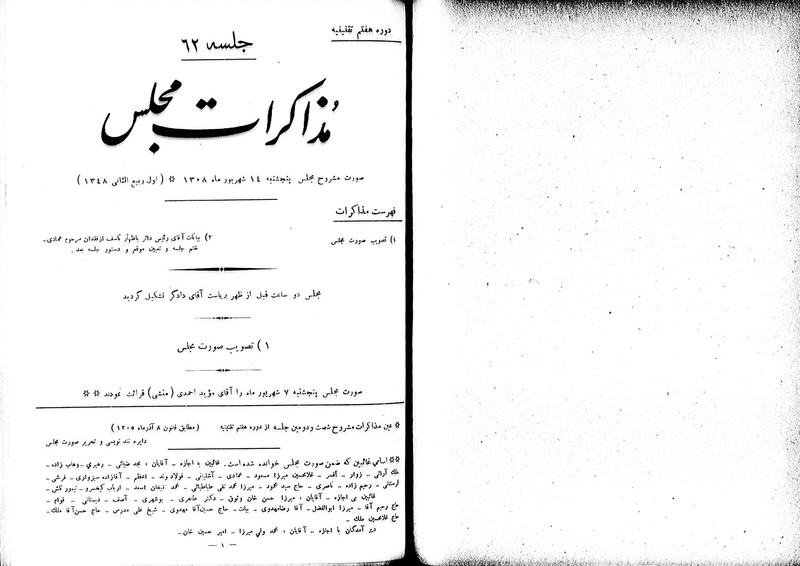 دوره هفتم تقنینیه
جلسه ۶۲
مذاکرات مجلس
صورت مشروح مجلس پنجشنبه ۱۴ شهریور ماه ۱۳۰۸ * ( اول ربیع الثانی ۱۳۴۸ )
فهرست مذاکرات
۱) تصویب صورت مجلس
۲) بیانات آقای رئیس دائر باظهار تأسف از فقدان مرحوم عمادی-
ختم جلسه و تعیین موقع و دستور جلسه بعد.
مجلس دو ساعت قبل از ظهر بریاست آقای دادگر تشکیل گردید
۱ ) تصویب صورت مجلس
صورت مجلس پنجشنبه ۷ شهریور ماه را آقای مؤید احمدی (منشی) قرائت نمودند * *
* عین مذاکرات مشروح شصت و دومین جلسه از دوره هفتم تقنینیه (مطابق قانون ۸ آذر ماه ۱۳۰۵)
دایره تند نویسی و تحریر صورت مجلس
** اسامی غائبین که ضمن صورت مجلس خوانده شده است. غائبین با اجازه - آقایان : مجد ضیائی - رهبری - وهاب زاده -
ملک آرائی - زوار - افسر - غلامحسین میرزا مسعود - عمادی - آشتیانی - فولادوند - اعظم - آقازاده سبزواری - قرشی -
لرستانی - رحیم زاده - ناصری - حاج سید محمود - میرزا محمد تقی طباطبائی - محمد تقیخان اسعد - ارباب کیخسرو - تیمور تاش -
غائبین بی اجازه - آقایان : میرزا حسن خان وثوق - دکتر طاهری - بوشهری - آصف - دیستانی - قوام -
حاج رحیم آقا - میرزا ابوالفضل - آقا رضا مهدوی - بیات - حاج حسین آقا مهدوی - شیخ علی مدرس - حاج حسن آقا ملک -
حاج غلامحسین ملک -
دیر آمدگان با اجازه - آقایان : محمد ولی میرزا - امیر حسین خان -
- ۱ -